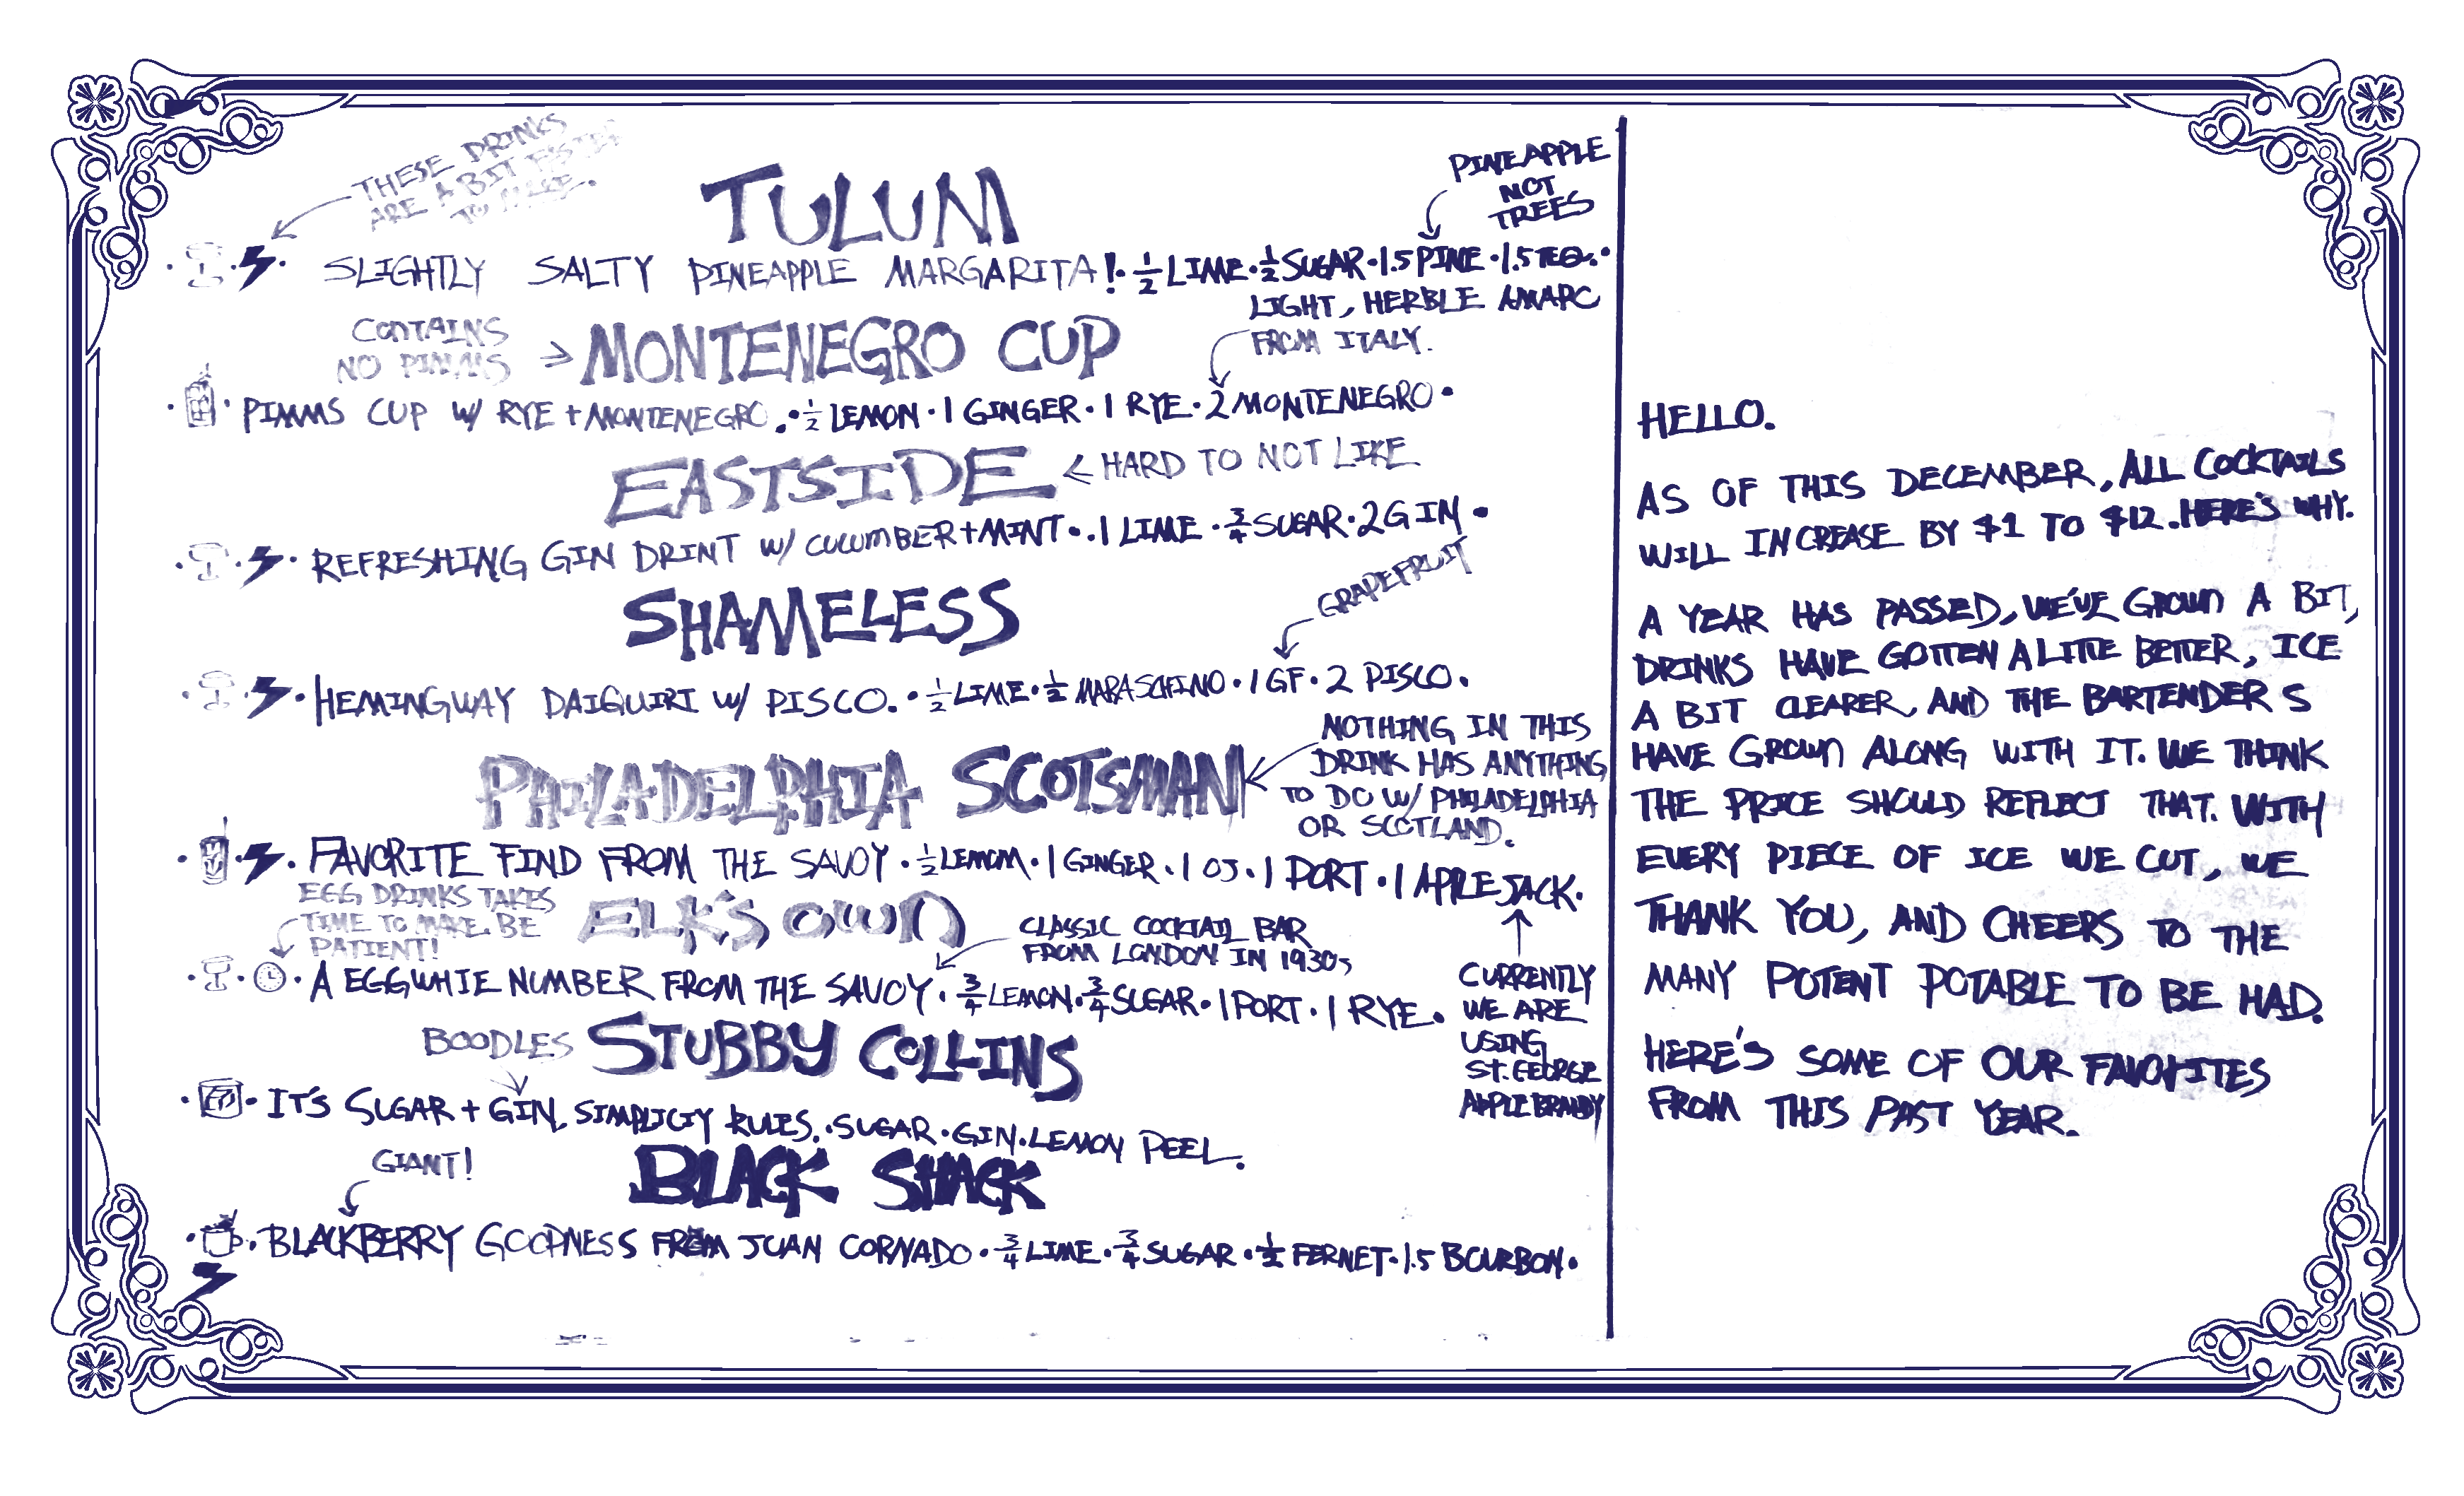 THESE DRINKS
ARE A BIT FASTER
TO MAKE.
TULUM
PINEAPPLE
NOT
TREES
SLIGHTLY SALTY PINEAPPLE MARGARITA! · ½ LIME · ½ SUGAR · 1.5 PINE · 1.5 TEQ. ·
LIGHT, HERBLE AMARO
FROM ITALY.
CONTAINS
NO PIMMS
→ MONTENEGRO CUP
PIMMS CUP W/ RYE + MONTENEGRO. · ½ LEMON · 1 GINGER · 1 RYE · 2 MONTENEGRO ·
EASTSIDE ← HARD TO NOT LIKE
REFRESHING GIN DRINT W/ CUCUMBER + MINT · · 1 LIME · ¾ SUGAR · 2 GIN ·
SHAMELESS
GRAPEFRUIT
HEMINGWAY DAIQUIRI W/ PISCO. · ½ LIME · ½ MARASCHINO · 1 GF · 2 PISCO ·
PHILADELPHIA SCOTSMAN
NOTHING IN THIS
DRINK HAS ANYTHING
TO DO W/ PHILADELPHIA
OR SCOTLAND.
FAVORITE FIND FROM THE SAVOY · ½ LEMOM · 1 GINGER · 1 OJ · 1 PORT · 1 APPLEJACK.
EGG DRINKS TAKES
TIME TO MAKE. BE
PATIENT!
ELK'S OWN
CLASSIC COCKTAIL BAR
FROM LONDON IN 1930s
A EGGWHIE NUMBER FROM THE SAVOY · ¾ LEMON · ¾ SUGAR · 1 PORT · 1 RYE ·
CURRENTLY
WE ARE
USING
ST. GEORGE
APPLE BRANDY
BOODLES
STUBBY COLLINS
IT'S SUGAR + GIN, SIMPLICITY RULES. · SUGAR · GIN · LEMON PEEL.
GIANT!
BLACK SHACK
BLACKBERRY GOODNESS FROM JUAN CORNADO · ¾ LIME · ¾ SUGAR · ½ FERNET · 1.5 BOURBON ·
HELLO.
AS OF THIS DECEMBER, ALL COCKTAILS
WILL INCREASE BY $1 TO $12. HERE'S WHY.
A YEAR HAS PASSED, WE'VE GROWN A BIT,
DRINKS HAVE GOTTEN A LITTLE BETTER, ICE
A BIT CLEARER, AND THE BARTENDERS
HAVE GROWN ALONG WITH IT. WE THINK
THE PRICE SHOULD REFLECT THAT. WITH
EVERY PIECE OF ICE WE CUT, WE
THANK YOU, AND CHEERS TO THE
MANY POTENT POTABLE TO BE HAD.
HERE'S SOME OF OUR FAVORITES
FROM THIS PAST YEAR.